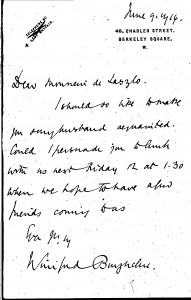 June 9. 1914.
48, CHARLES STREET,
BERKELEY SQUARE,
W.
Dear Monsieur de Laszlo.
I should so like to make
you & my husband acquainted.
Could I persuade you to lunch
with us next Friday 12 at 1.30
when we hope to have a few
friends coming to us
Winifred Burghclere